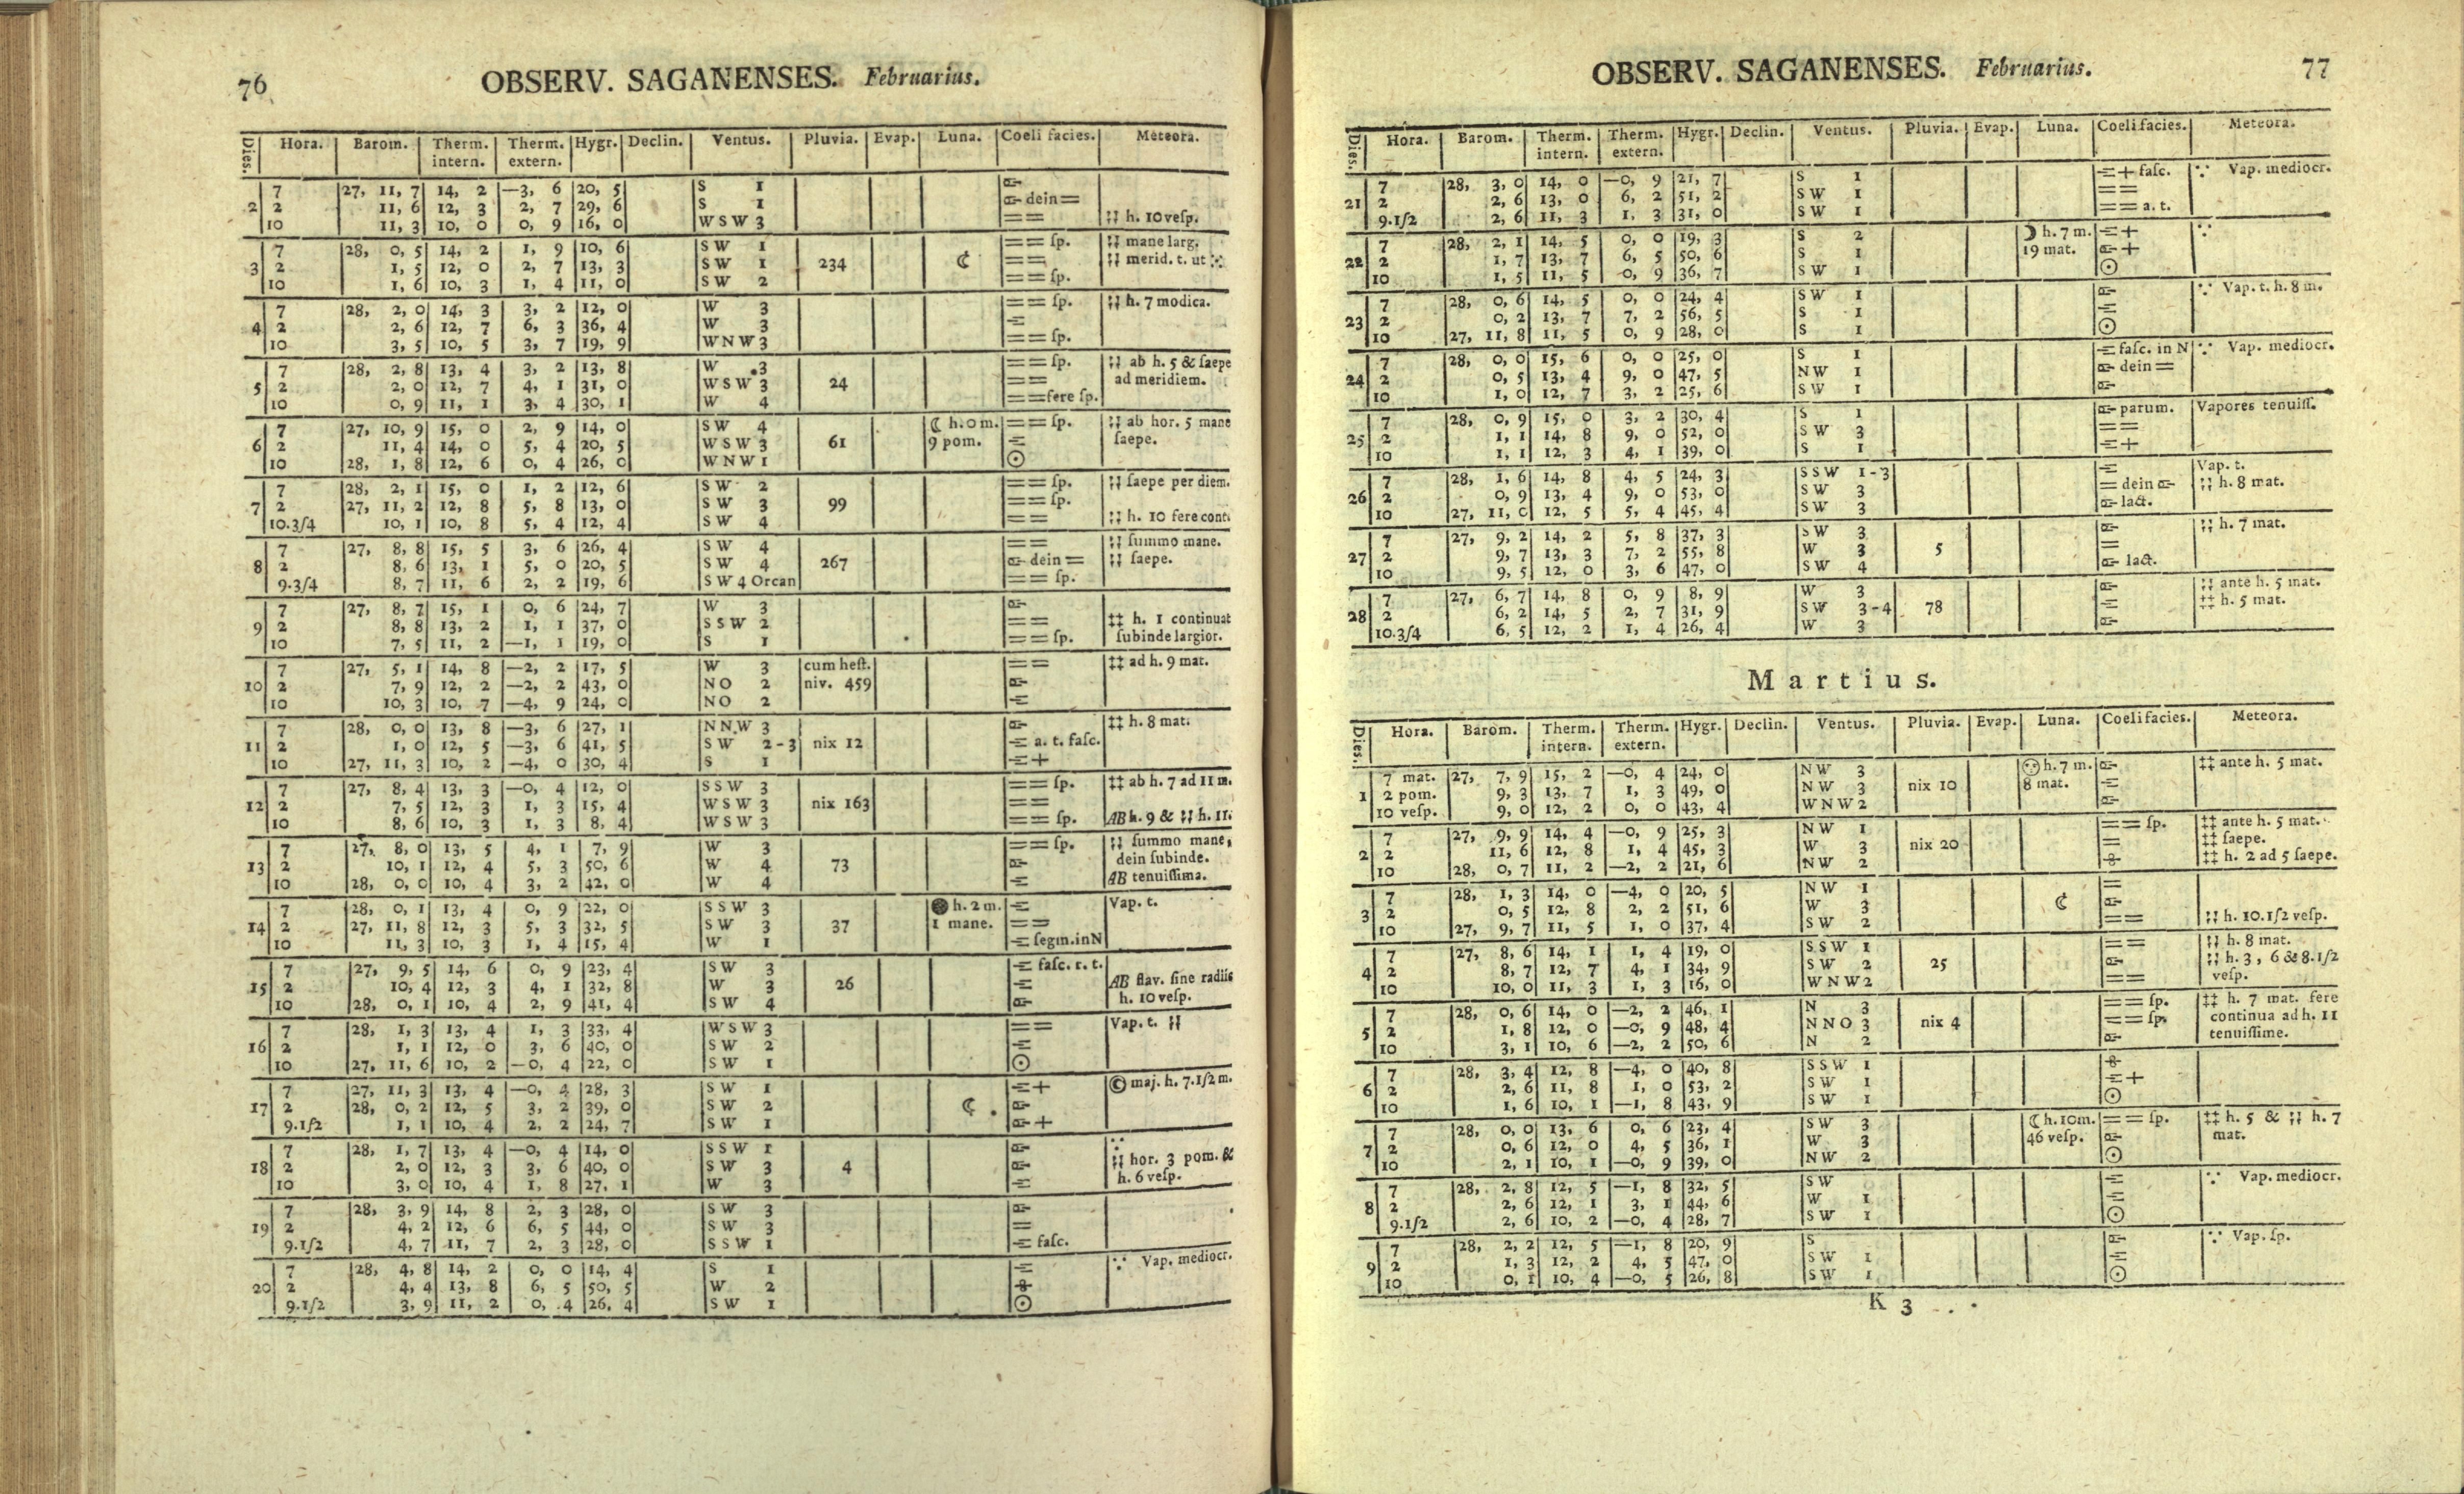 76
OBSERV. SAGANENSES. Februarius.
Dies. Hora. Barom. Therm. intern. Therm. extern. Hygr. Declin. Ventus. Pluvia. Evap. Luna. Coeli facies. Meteora.
7 27, 11, 7 14, 2 —3, 6 20, 5 S 1
2 2 11, 6 12, 3 2, 7 29, 6 S 1 dein =
10 11, 3 10, 0 0, 9 16, 0 WSW 3 == h. 10 veſp.
7 28, 0, 5 14, 2 1, 9 10, 6 SW 1 == ſp. mane larg.
3 2 1, 5 12, 0 2, 7 13, 3 SW 1 234 ☾ == merid. t. ut
10 1, 6 10, 3 1, 4 11, 0 SW 2 == ſp.
7 28, 2, 0 14, 3 3, 2 12, 0 W 3 == ſp. h. 7 modica.
4 2 2, 6 12, 7 6, 3 36, 4 W 3
10 3, 5 10, 5 3, 7 19, 9 WNW 3 == ſp.
7 28, 2, 8 13, 4 3, 2 13, 8 W 3 == ſp. ab h. 5 & ſaepe
5 2 2, 0 12, 7 4, 1 31, 0 WSW 3 24 == ad meridiem.
10 0, 9 11, 1 3, 4 30, 1 W 4 == fere ſp.
7 27, 10, 9 15, 0 2, 9 14, 0 SW 4 ☾ h. 0 m. == ſp. ab hor. 5 mane
6 2 11, 4 14, 0 5, 4 20, 5 WSW 3 61 9 pom. ſaepe.
10 28, 1, 8 12, 6 0, 4 26, 0 WNW 1 ☉
7 28, 2, 1 15, 0 1, 2 12, 6 SW 2 == ſp. ſaepe per diem.
7 2 27, 11, 2 12, 8 5, 8 13, 0 SW 3 99 == ſp.
10.3/4 10, 1 10, 8 5, 4 12, 4 SW 4 == h. 10 fere cont.
7 27, 8, 8 15, 5 3, 6 26, 4 SW 4 == ſummo mane.
8 2 8, 6 13, 1 5, 0 20, 5 SW 4 267 dein = ſaepe.
9.3/4 8, 7 11, 6 2, 2 19, 6 SW 4 Orcan == ſp.
7 27, 8, 7 15, 1 0, 6 24, 7 W 3
9 2 8, 8 13, 2 1, 1 37, 0 SSW 2 == ‡‡ h. 1 continuat
10 7, 5 11, 2 —1, 1 19, 0 S 1 == ſp. ſubinde largior.
7 27, 5, 1 14, 8 —2, 2 17, 5 W 3 cum heſt. == ‡‡ ad h. 9 mat.
10 2 7, 9 12, 2 —2, 2 43, 0 NO 2 niv. 459
10 10, 3 10, 7 —4, 9 24, 0 NO 2
7 28, 0, 0 13, 8 —3, 6 27, 1 NNW 3 ‡‡ h. 8 mat.
11 2 1, 0 12, 5 —3, 6 41, 5 SW 2-3 nix 12 a. t. faſc.
10 27, 11, 3 10, 2 —4, 0 30, 4 S 1 +
7 27, 8, 4 13, 3 —0, 4 12, 0 SSW 3 == ſp. ‡‡ ab h. 7 ad 11 m.
12 2 7, 5 12, 3 1, 3 15, 4 WSW 3 nix 163 ==
10 8, 6 10, 3 1, 3 8, 4 WSW 3 == ſp. AB h. 9 & h. 11.
7 27, 8, 0 13, 5 4, 1 7, 9 W 3 == ſp. ſummo mane,
13 2 10, 1 12, 4 5, 3 50, 6 W 4 73 dein ſubinde.
10 28, 0, 0 10, 4 3, 2 42, 0 W 4 AB tenuiſſima.
7 28, 0, 1 13, 4 0, 9 22, 0 SSW 3 h. 2 m. Vap. t.
14 2 27, 11, 8 12, 3 5, 3 32, 5 SW 3 37 1 mane. ==
10 11, 3 10, 3 1, 4 15, 4 W 1 ſegm. in N
7 27, 9, 5 14, 6 0, 9 23, 4 SW 3 faſc. r. t.
15 2 10, 4 12, 3 4, 1 32, 8 W 3 26 AB flav. ſine radiis
10 28, 0, 1 10, 4 2, 9 41, 4 SW 4 h. 10 veſp.
7 28, 1, 3 13, 4 1, 3 33, 4 WSW 3 == Vap. t.
16 2 1, 1 12, 0 3, 6 40, 0 SW 2
10 27, 11, 6 10, 2 —0, 4 22, 0 SW 1 ☉
7 27, 11, 3 13, 4 —0, 4 28, 3 SW 1 + © maj. h. 7.1/2 m.
17 2 28, 0, 2 12, 5 3, 2 39, 0 SW 2
9.1/2 1, 1 10, 4 2, 2 24, 7 SW 1 +
7 28, 1, 7 13, 4 —0, 4 14, 0 SSW 1
18 2 2, 0 12, 3 3, 6 40, 0 SW 3 4 hor. 3 pom. &
10 3, 0 10, 4 1, 8 27, 1 W 3 h. 6 veſp.
7 28, 3, 9 14, 8 2, 3 28, 0 SW 3
19 2 4, 2 12, 6 6, 5 44, 0 SW 3 =
9.1/2 4, 7 11, 7 2, 3 28, 0 SSW 1 faſc.
7 28, 4, 8 14, 2 0, 0 14, 4 S 1 Vap. mediocr.
20 2 4, 4 13, 8 6, 5 50, 5 W 2
9.1/2 3, 9 11, 2 0, 4 26, 4 SW 1 ☉
OBSERV. SAGANENSES. Februarius. 77
Dies. Hora. Barom. Therm. intern. Therm. extern. Hygr. Declin. Ventus. Pluvia. Evap. Luna. Coeli facies. Meteora.
7 28, 3, 0 14, 0 —0, 9 21, 7 S 1 + faſc. Vap. mediocr.
21 2 2, 6 13, 0 6, 2 51, 2 SW 1 ==
9.1/2 2, 6 11, 3 1, 3 31, 0 SW 1 == a. t.
7 28, 2, 1 14, 5 0, 0 19, 3 S 2 ☽ h. 7 m. +
22 2 1, 7 13, 7 6, 5 50, 6 S 1 19 mat. +
10 1, 5 11, 5 0, 9 36, 7 SW 1 ☉
7 28, 0, 6 14, 5 0, 0 24, 4 SW 1 Vap. t. h. 8 m.
23 2 0, 2 13, 7 7, 2 56, 5 S 1
10 27, 11, 8 11, 5 0, 9 28, 0 S 1 ☉
7 28, 0, 0 15, 6 0, 0 25, 0 S 1 faſc. in N Vap. mediocr.
24 2 0, 5 13, 4 9, 0 47, 5 NW 1 dein =
10 1, 0 12, 7 3, 2 25, 6 SW 1
7 28, 0, 9 15, 0 3, 2 30, 4 S 1 parum. Vapores tenuiſſ.
25 2 1, 1 14, 8 9, 0 52, 0 SW 3 ==
10 1, 1 12, 3 4, 1 39, 0 S 1 +
7 28, 1, 6 14, 8 4, 5 24, 3 SSW 1-3 Vap. t.
26 2 0, 9 13, 4 9, 0 53, 0 SW 3 = dein h. 8 mat.
10 27, 11, 0 12, 5 5, 4 45, 4 SW 3 lact.
7 27, 9, 2 14, 2 5, 8 37, 3 SW 3 h. 7 mat.
27 2 9, 7 13, 3 7, 2 55, 8 W 3 5 =
10 9, 5 12, 0 3, 6 47, 0 SW 4 lact.
7 27, 6, 7 14, 8 0, 9 8, 9 W 3 ante h. 5 mat.
28 2 6, 2 14, 5 2, 7 31, 9 SW 3-4 78 ‡‡ h. 5 mat.
10.3/4 6, 5 12, 2 1, 4 26, 4 W 3
Martius.
Dies. Hora. Barom. Therm. intern. Therm. extern. Hygr. Declin. Ventus. Pluvia. Evap. Luna. Coeli facies. Meteora.
7 mat. 27, 7, 9 15, 2 —0, 4 24, 0 NW 3 h. 7 m. ‡‡ ante h. 5 mat.
1 2 pom. 9, 3 13, 7 1, 3 49, 0 NW 3 nix 10 8 mat.
10 veſp. 9, 0 12, 2 0, 0 43, 4 WNW 2
7 27, 9, 9 14, 4 —0, 9 25, 3 NW 1 == ſp. ‡‡ ante h. 5 mat.
2 2 11, 6 12, 8 1, 4 45, 3 W 3 nix 20 = ‡‡ ſaepe.
10 28, 0, 7 11, 2 —2, 2 21, 6 NW 2 ‡‡ h. 2 ad 5 ſaepe.
7 28, 1, 3 14, 0 —4, 0 20, 5 NW 1 =
3 2 0, 5 12, 8 2, 2 51, 6 W 3 ☾
10 27, 9, 7 11, 5 1, 0 37, 4 SW 2 == h. 10.1/2 veſp.
7 27, 8, 6 14, 1 1, 4 19, 0 SSW 1 == h. 8 mat.
4 2 8, 7 12, 7 4, 1 34, 9 SW 2 25 h. 3, 6 & 8.1/2
10 10, 0 11, 3 1, 3 16, 0 WNW 2 == veſp.
7 28, 0, 6 14, 0 —2, 2 46, 1 N 3 == ſp. ‡‡ h. 7 mat. fere
5 2 1, 8 12, 0 —0, 9 48, 4 NNO 3 nix 4 == ſp. continua ad h. 11
10 3, 1 10, 6 —2, 2 50, 6 N 2 tenuiſſime.
7 28, 3, 4 12, 8 —4, 0 40, 8 SSW 1
6 2 2, 6 11, 8 1, 0 53, 2 SW 1 +
10 1, 6 10, 1 —1, 8 43, 9 SW 1 ☉
7 28, 0, 0 13, 6 0, 6 23, 4 SW 3 ☾ h. 10 m. == ſp. ‡‡ h. 5 & h. 7
7 2 0, 6 12, 0 4, 5 36, 1 W 3 46 veſp. mat.
10 2, 1 10, 1 —0, 9 39, 0 NW 2 ☉
7 28, 2, 8 12, 5 —1, 8 32, 5 SW Vap. mediocr.
8 2 2, 6 12, 1 3, 1 44, 6 W 1
9.1/2 2, 6 10, 2 —0, 4 28, 7 SW 1 ☉
7 28, 2, 2 12, 5 —1, 8 20, 9 S Vap. ſp.
9 2 1, 3 12, 2 4, 5 47, 0 SW 1
10 0, 1 10, 4 —0, 5 26, 8 SW 1 ☉
K 3